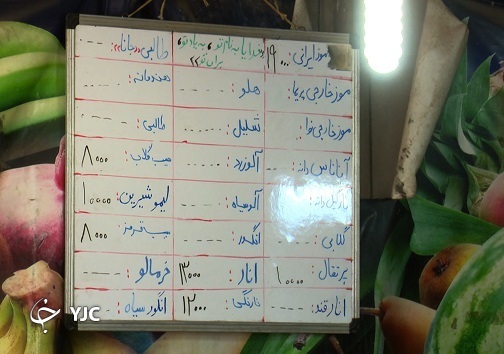 موز ایرانی: ۱۹۰۰۰ به نام تو، به یاد تو، طالبی: ----
برای تو
موز خارجی پریما: هلو: ----- هندوانه: ----
موز خارجی خوا: شلیل: ----- طالبی: -----
آناناس دانه: -- آلو زرد: ----- سیب گلاب: ۸۰۰۰
نارگیل دانه: آلو سیاه: ----- لیمو شیرین: ۱۰۰۰۰
گلابی: ---- انگور: ----- سیب قرمز: ۸۰۰۰
پرتقال: ۱۰۰۰۰ انار: ۱۳۰۰۰ خرمالو: ----
انار قند: ---- نارنگی: ۱۲۰۰۰ انگور سیاه: ----
YJC